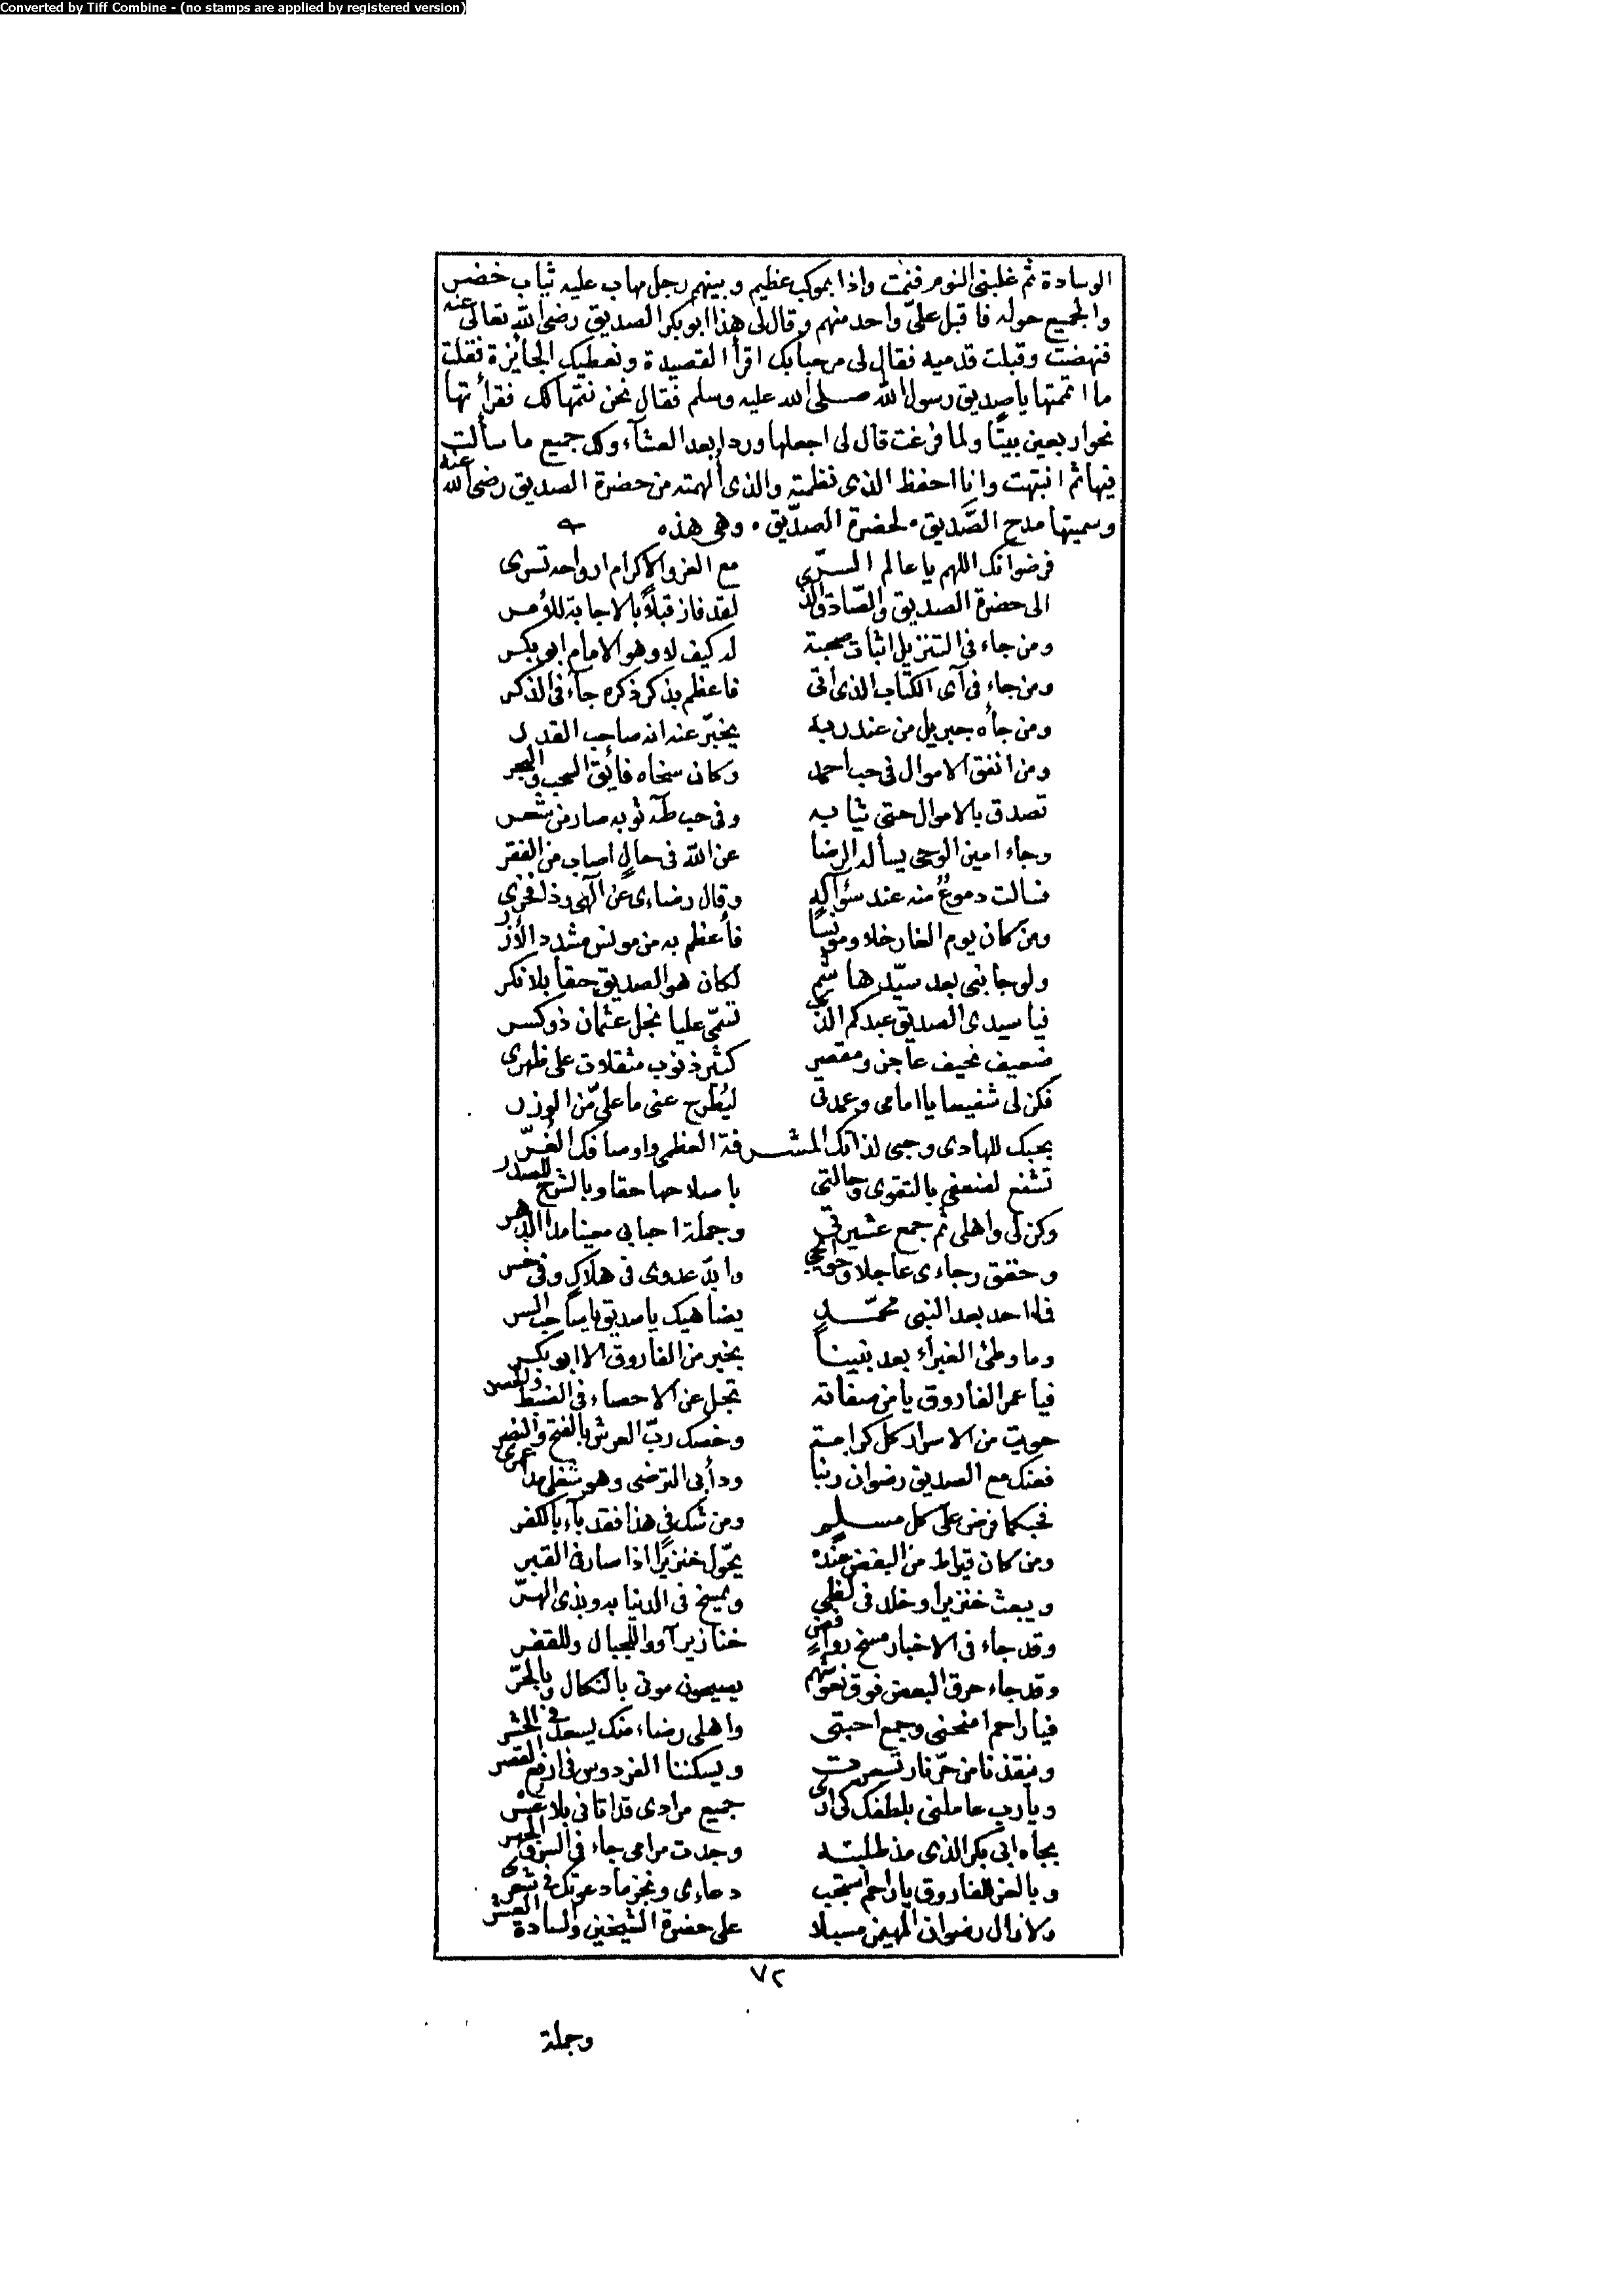 Converted by Tiff Combine - (no stamps are applied by registered version)
الوسادة ثم غلبنى النوم فنمت واذا بموكب عظيم وبينهم رجل مهاب عليه ثياب خضر
والجميع حوله فاقبل علىّ واحد منهم وقال لى هذا ابو بكر الصديق رضى الله تعالى عنه
فنهضت وقبلت قدميه فقال لى مرحبا بك اقرأ القصيدة ونعطيك الجائزة فقلت
ما اتممتها يا صديق رسول الله صلى الله عليه وسلم فقال نحن نتمها لك فقرأتها
نحو اربعين بيتا ولما فرغت قال لى اجعلها وردا بعد العشآء ولك جميع ما سألت
فيها ثم انتبهت وانا احفظ الذى نظمته والذى ألهمته من حضرة الصديق رضى الله عنه
وسميتها مدح الصّديق • لحضرة الصدّيق • وهى هذه
فرضوانك اللهم يا عالم السرّى مع العز والاكرام ارواحه تسرى
الى حضرة الصديق والصادق الذى لقد فاز قبلاً بالاجابة للأمر
ومن جاء فى التنزيل اثبات صحبة له كيف لا وهو الامام ابو بكر
ومن جاء فى آى الكتاب الذى اتى فاعظم بذكر ذكره جآء فى الذكر
ومن جأه جبريل من عند ربه يخبّر عنه انه صاحب القدر
ومن انفق الاموال فى حب احمد وكان سخاه فائق السحب والبحر
تصدق بالاموال حتى ثيابه وفى حب طه ثوبه صار من شعر
وجاء امين الوحى يسأله الرضا عن الله فى حالٍ اصاب من الفقر
فسالت دموعٌ منه عند سؤآله وقال رضاءى عن الهى وذا فخرى
ومن كان يوم الغار خلا ومونسا فأعظم به من مونس مشدد الأزر
ولو جا نبى بعد سيّد هاشم لكان هو الصديق حقا بلا نكر
فيا سيدى الصديق عبدكم الذى تسمّى عليا نجل عثمان ذو كسر
ضعيف نحيف عاجز ومقصر كثير ذنوب مثقلات على ظهرى
فكن لى شفيعا يا امامى وعمدتى ليُطرح عنى ما علىّ من الوزر
بحبك للهادى وحبى لذاتك المشرفة العظمى واوصافك الغُرّ
تشفع لضعفى بالتقوى وحالتى باصلاحها حقا وبالشرح للصدر
وكن لى واهلى ثم جمع عشيرتى وجملة احبابى معينا مدا الدهر
وحقق رجاءى عاجلا وحوائجى وابدّ عدوى فى هلاكٍ وفى خسر
فلا احد بعد النبى محمّدٍ يضاهيك يا صديق يا صاحب السر
وما وطئ الغبراء بعد نبينا بخير من الفاروق الا ابو بكر
فيا عمر الفاروق يا من صفاته تجل عن الاحصاء فى الضبط والحصر
حويت من الاسرار كل كرامة وخصك ربّ العرش بالفتح والنصر
فعنك مع الصديق رضوان ربنا ودأبى الترضى وهو شغلى مدا عمرى
فحبكما فرض على كل مسلمٍ ومن شك فى هذا فقد بآء بالكفر
ومن كان قيراط من البغض عنده يحوّل خنزيرا اذا صار فى القبر
ويبعث خنزيرا وخلد فى لظى ويمسخ فى الدنيا
وقد جاء فى الاخبار مسخ روافض خنازير آووا للجبال وللقفر
وقد جاء حرق البعض فوق نعوشهم يسيحون موتى بالنكال وبالجرّ
فيا راحم امنحنى وجمع احبتى واهلى رضاء منك يسعد فى الحشر
وينقذنا من حرّ نار تسعرت ويسكننا الفردوس فى ارفع القصر
ويا رب عاملنى بلطفك كى ارى جميع مرادى قد اتانى بلا عسر
بجاه ابى بكر الذى مذ طلبته وجدت مرامى جاء فى السر والجهر
وبالعز الفاروق يا راحم استجب دعاءى ونجز ما دعوتك فى شعرى
ولا زال رضوان المهيمن مسبلا على حضرة الشيخين والسادة العشر
٧٢
وجملة